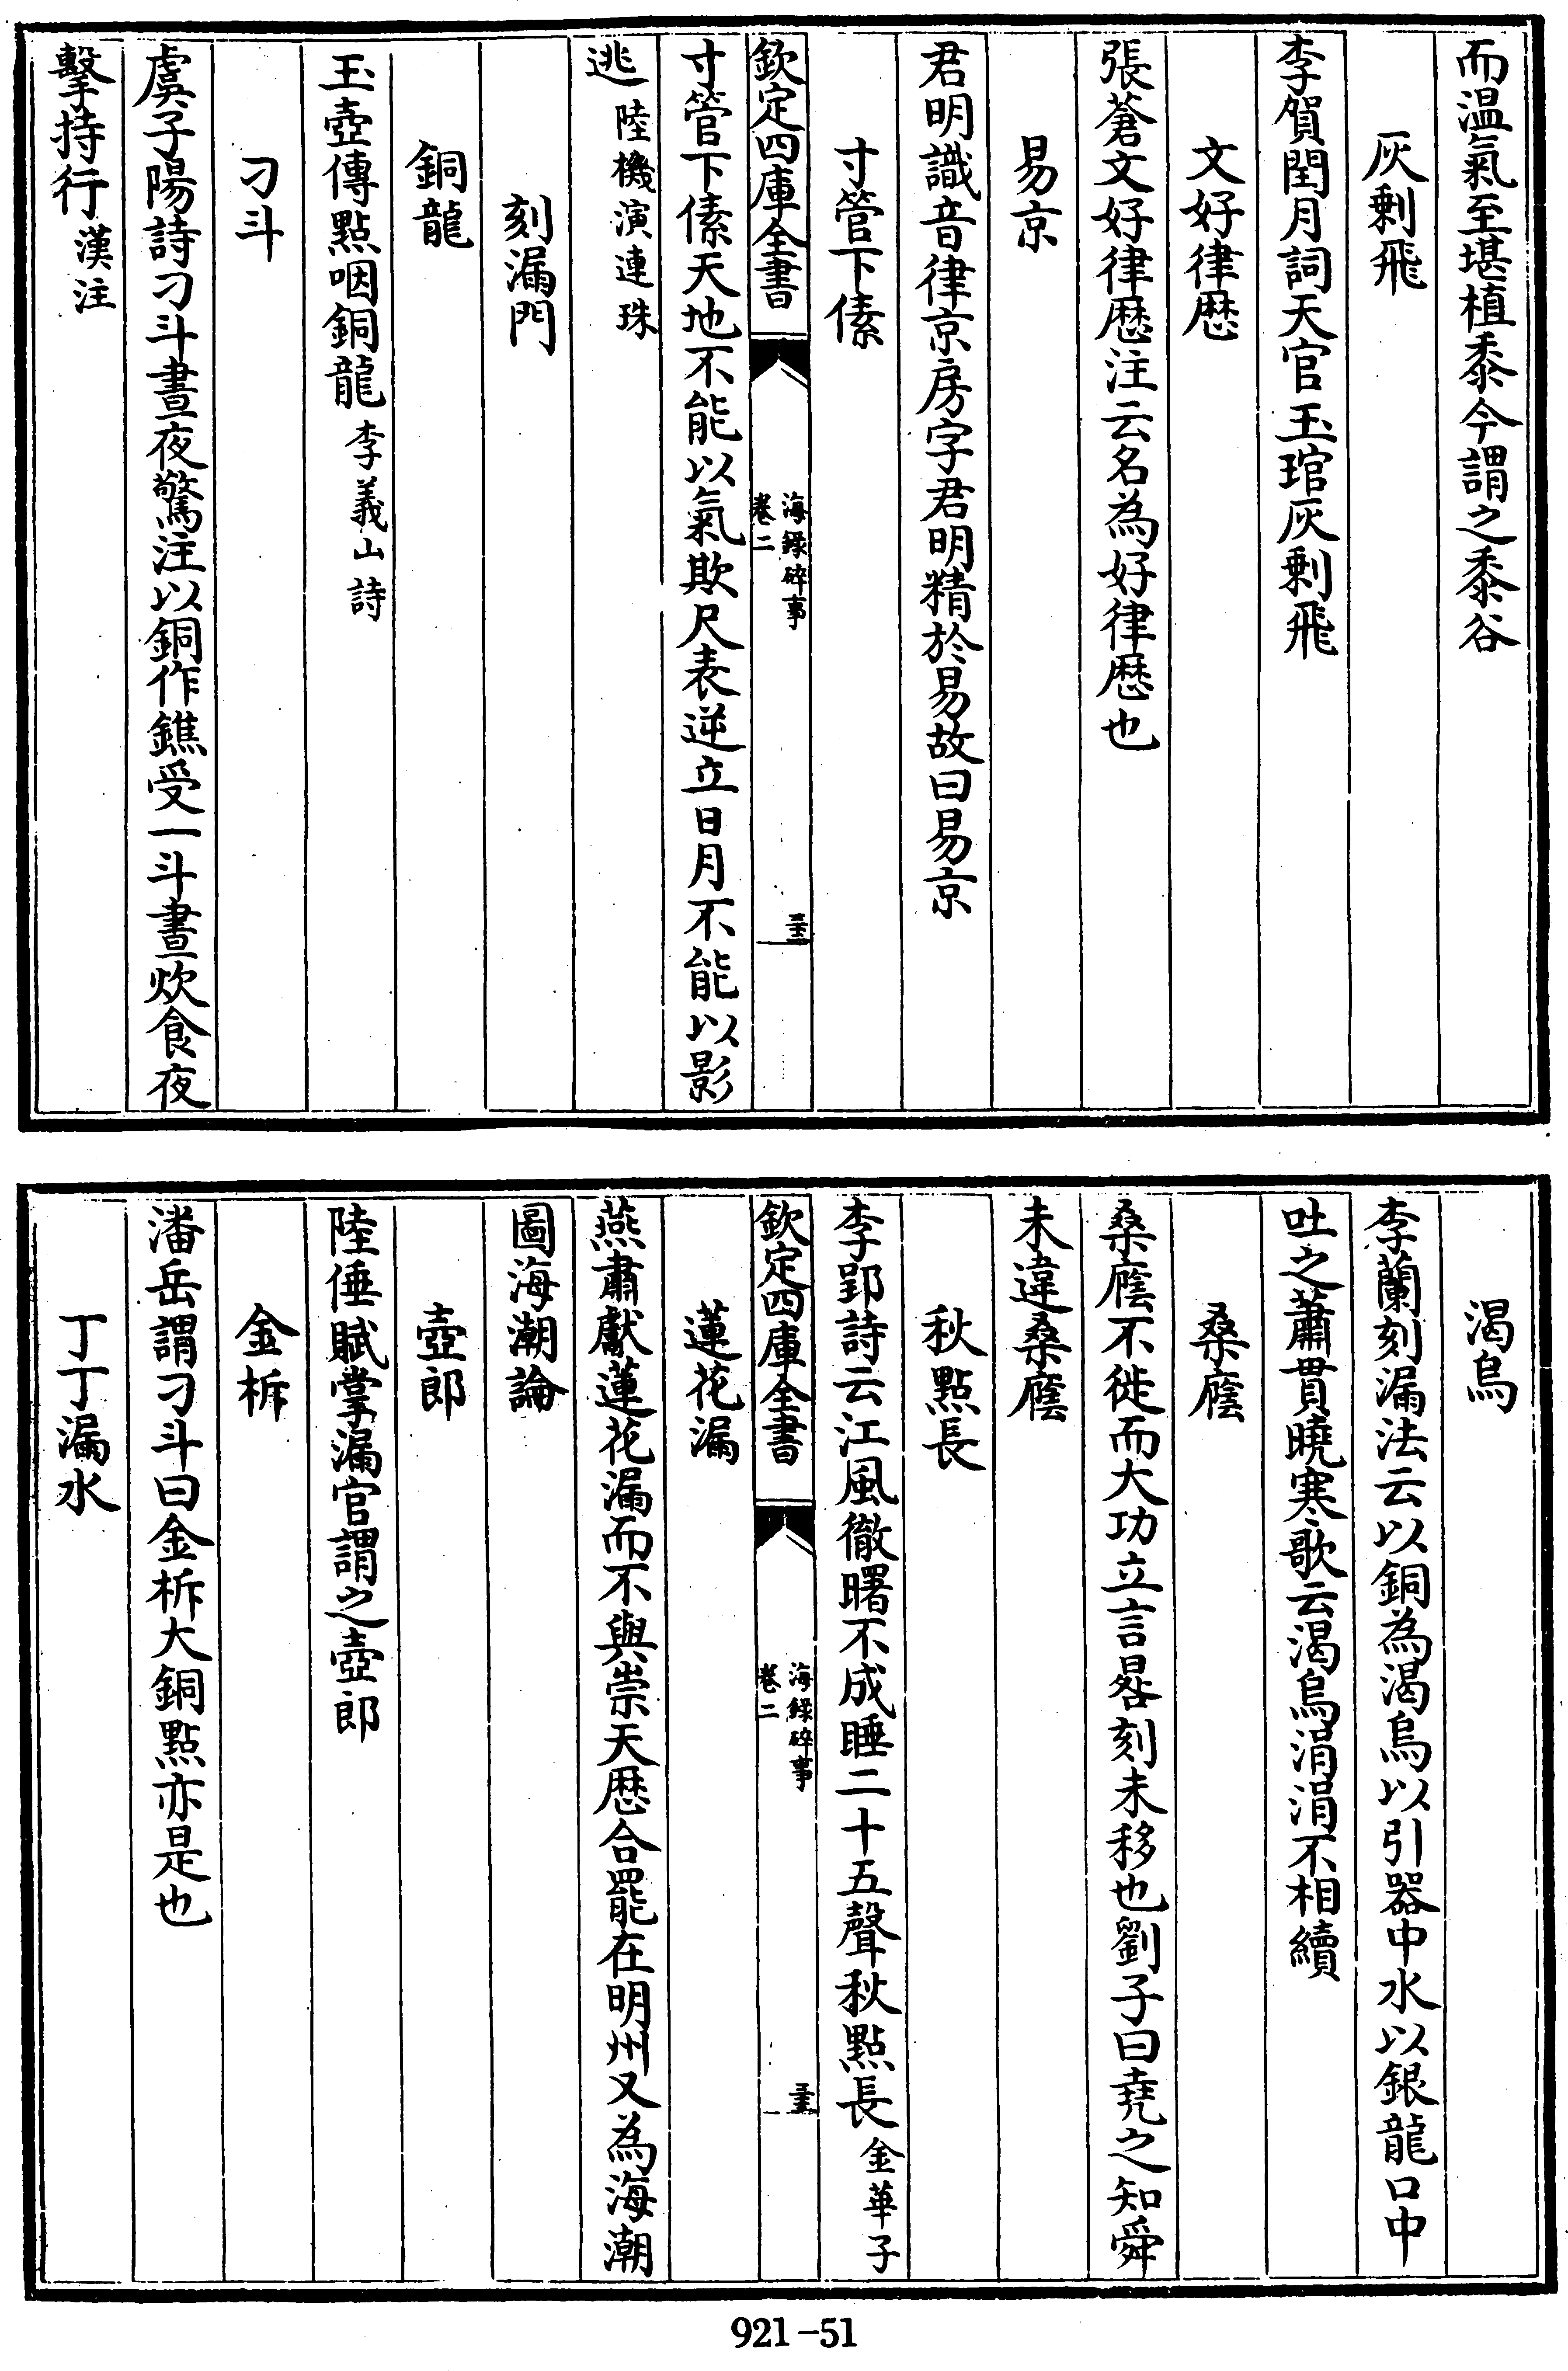 而温氣至堪植黍今謂之黍谷
灰剰飛
李賀閏月詞天官玉琯灰剰飛
文好律厯
張蒼文好律厯注云名為好律厯也
易京
君明識音律京房字君明精於易故曰易京
寸管下傃
欽定四庫全書
海錄碎事
卷二
寸管下傃天地不能以氣欺尺表逆立日月不能以影
逃陸機演連珠
刻漏門
銅龍
玉壺傳點咽銅龍李義山詩
刁斗
虞子陽詩刁斗晝夜驚注以銅作鐎受一斗晝炊食夜
擊持行漢注
渴烏
李蘭刻漏法云以銅為渴烏以引器中水以銀龍口中
吐之蕭貫曉寒歌云渴烏涓涓不相續
桑廕
桑廕不徙而大功立言晷刻未移也劉子曰堯之知舜
未違桑廕
秋點長
李郢詩云江風徹曙不成睡二十五聲秋點長金華子
欽定四庫全書
海錄碎事
卷二
蓮花漏
燕肅獻蓮花漏而不與崇天厯合罷在明州又為海潮
圖海潮論
壺郎
陸倕賦掌漏官謂之壺郎
金柝
潘岳謂刁斗曰金柝大銅點亦是也
丁丁漏水
921-51